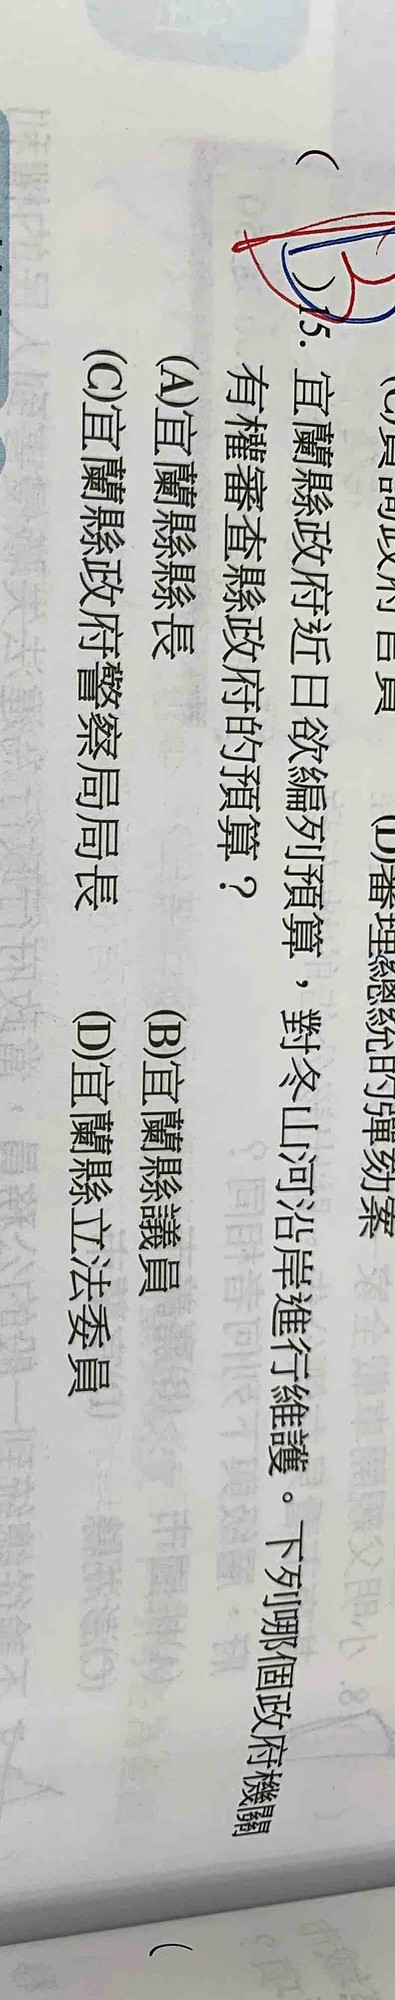 (D)審理總統的彈劾案
( B )15. 宜蘭縣政府近日欲編列預算，對冬山河沿岸進行維護。下列哪個政府機關
有權審查縣政府的預算？
(A)宜蘭縣縣長 (B)宜蘭縣議員
(C)宜蘭縣政府警察局局長 (D)宜蘭縣立法委員